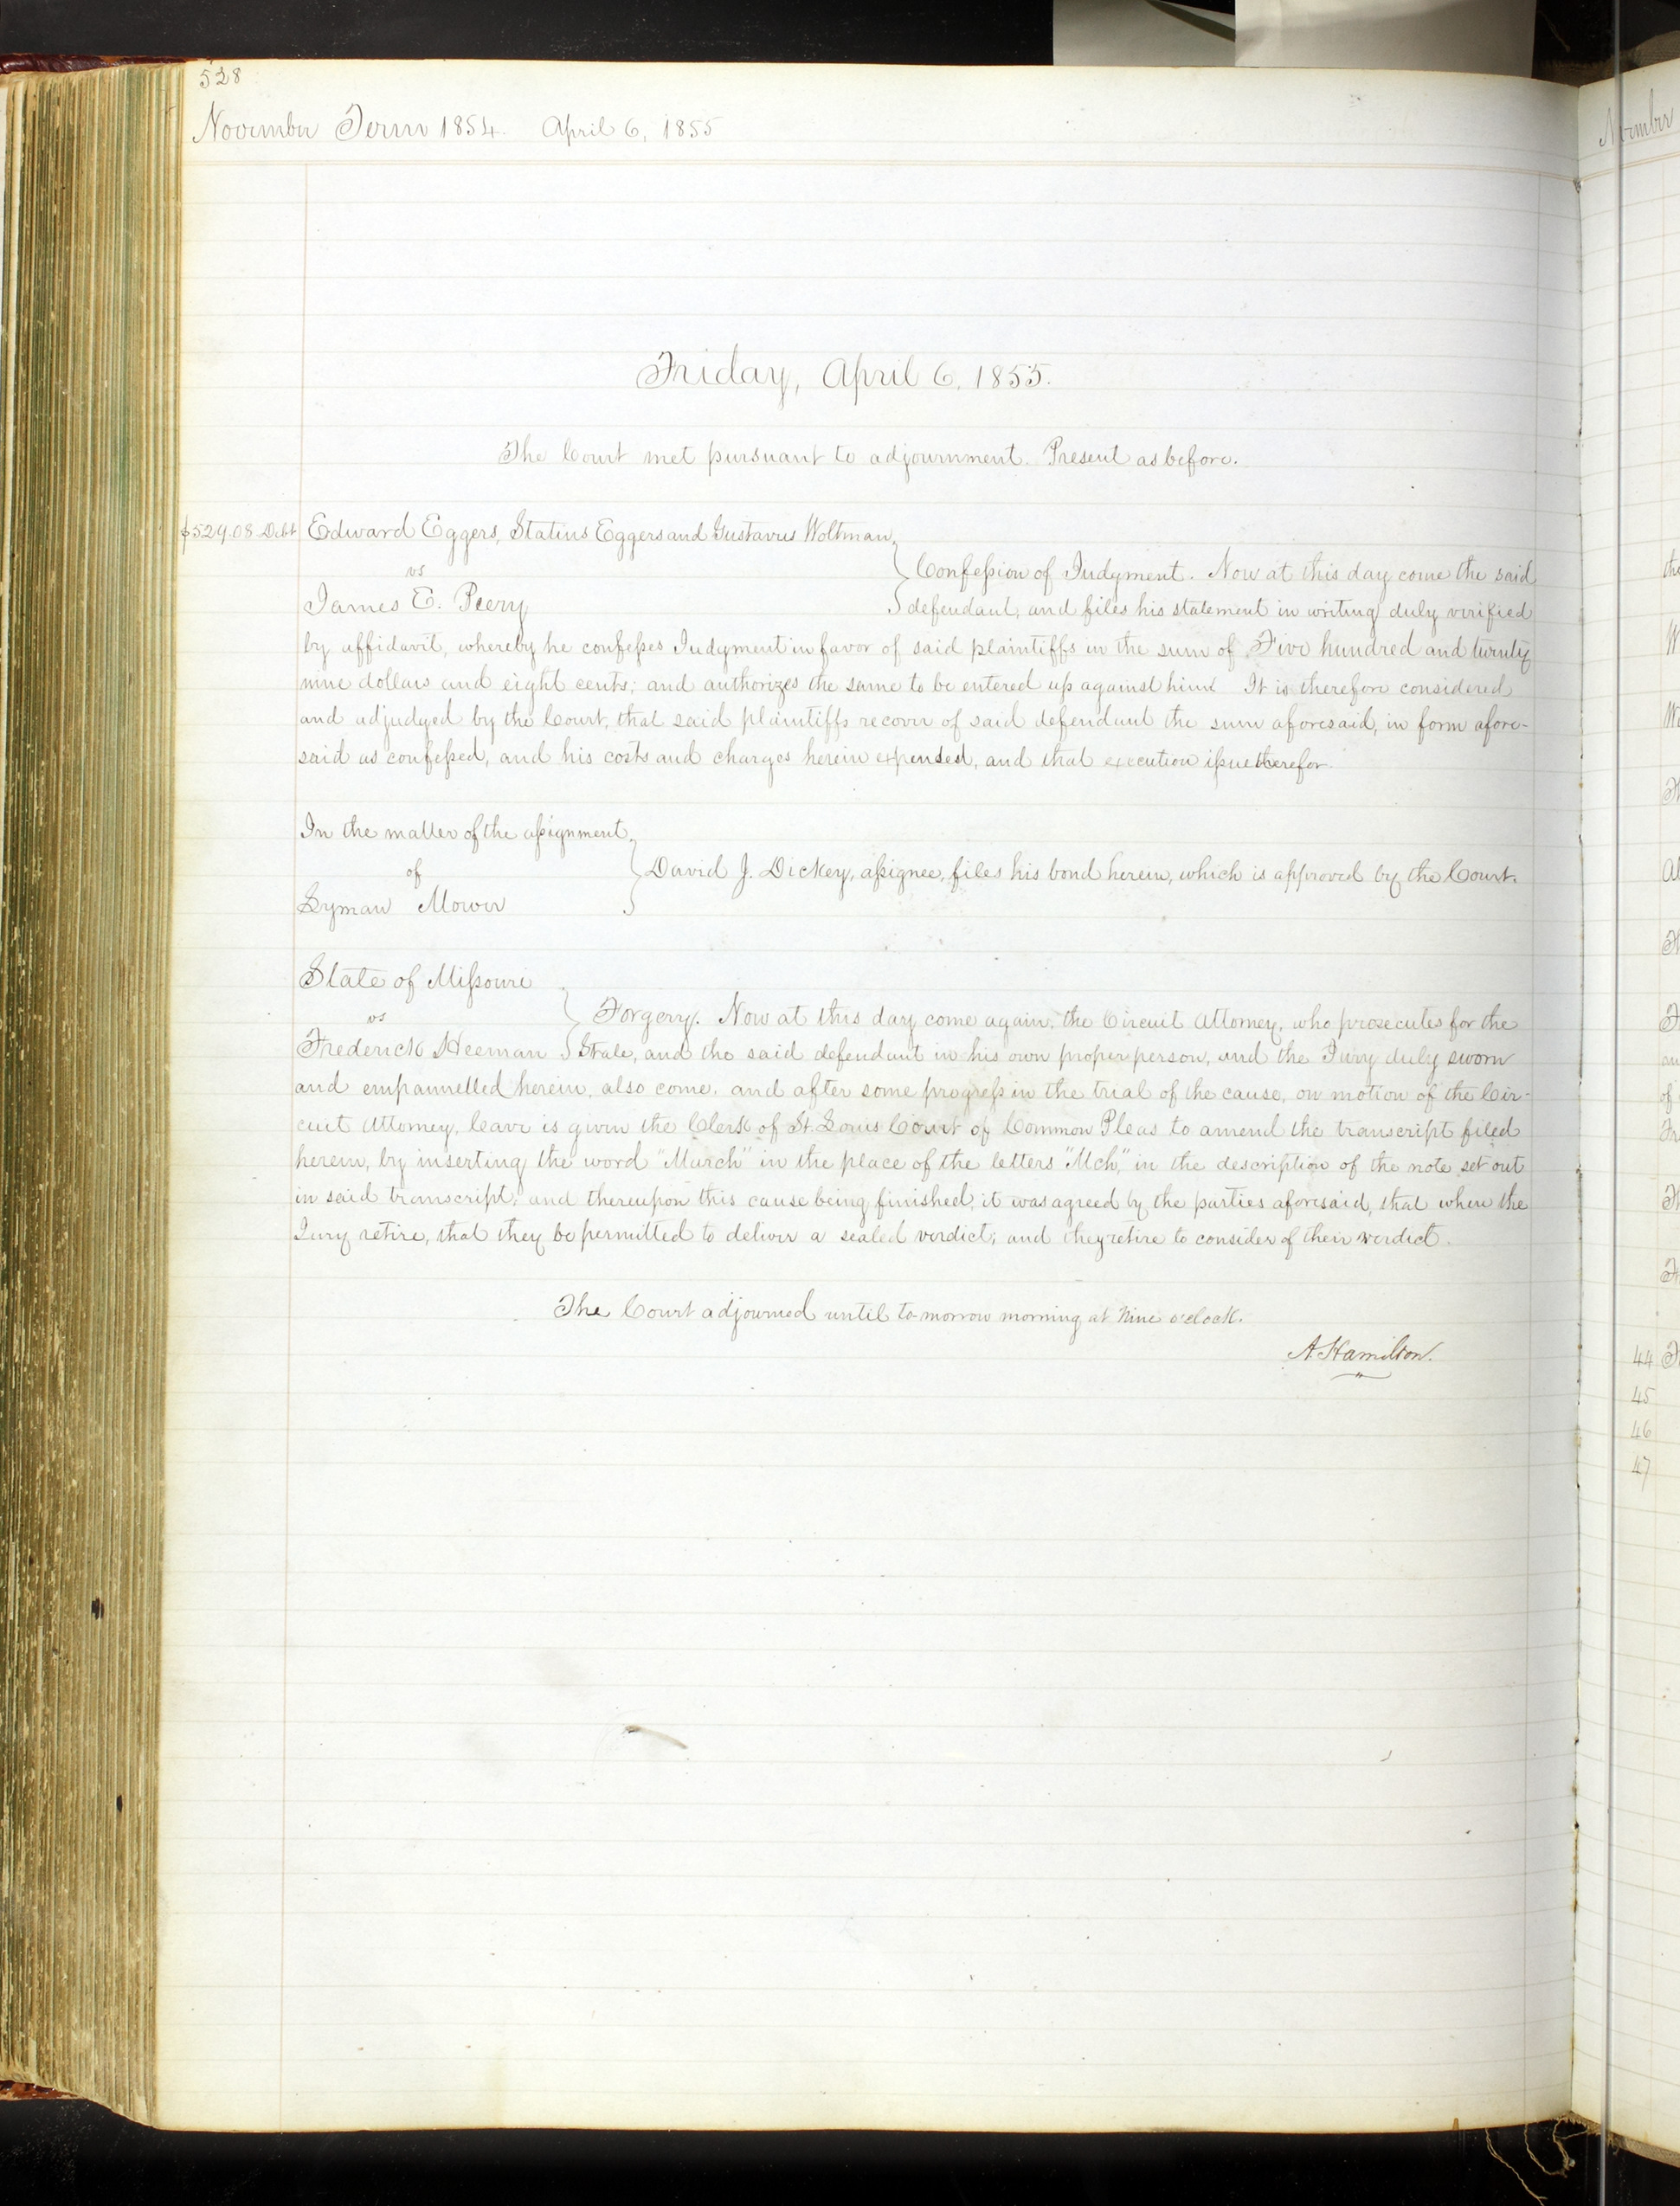 528
November Term 1854. April 6, 1855
Friday, April 6, 1855.
The Court met pursuant to adjournment. Present as before.
$529.08 Debt Edward Eggers, Statius Eggers and Gustavus Woltman,
vs
Confession of Judgment. Now at this day come the said
James E. Peery
defendant, and files his statement in writing duly verified
by affidavit, whereby he confesses Judgment in favor of said plaintiffs in the sum of Five hundred and twenty
nine dollars and eight cents; and authorizes the same to be entered up against him. It is therefore considered
and adjudged by the Court, that said plaintiffs recover of said defendant the sum aforesaid, in form afore-
said as confessed, and his costs and charges herein expended, and that execution issue therefor.
In the matter of the assignment
of
David J. Dickey, assignee, files his bond herein, which is approved by the Court.
Lyman Mower
State of Missouri
vs
Forgery. Now at this day come again, the Circuit Attorney, who prosecutes for the
Frederick Heeman State, and the said defendant in his own proper person, and the Jury duly sworn
and empannelled herein, also come. and after some progress in the trial of the cause, on motion of the Cir-
cuit Attorney, leave is given the Clerk of St. Louis Court of Common Pleas to amend the transcript filed
herein, by inserting the word "March" in the place of the letters "Mch," in the description of the note set out
in said transcript; and thereupon this cause being finished, it was agreed by the parties aforesaid, that when the
Jury retire, that they be permitted to deliver a sealed verdict; and they retire to consider of their verdict.
The Court adjourned until to-morrow morning at nine o'clock.
A. Hamilton.
44
45
46
47